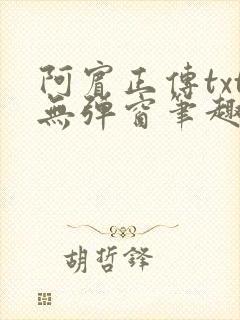 阿賓正傳txt
無彈窗筆趣
胡哲鋒